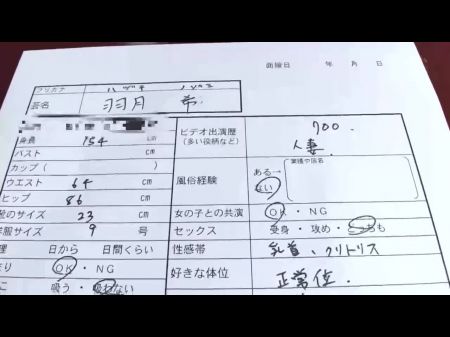 面接日 年 月 日
フリガナ ハヅキ ノゾミ
芸名 羽月 希
身長 154 cm
バスト cm
カップ( )
ウエスト 64 cm
ヒップ 86 cm
靴のサイズ 23 cm
洋服サイズ 9 号
理 日から 日間くらい
OK・NG
吸う・吸わない
ビデオ出演歴 700.
(多い役柄など) 人妻
風俗経験 ある→ (業種や店名)
ない
女の子との共演 OK・NG
セックス 受身・攻め・どっちも
性感帯 乳首、クリトリス
好きな体位 正常位.